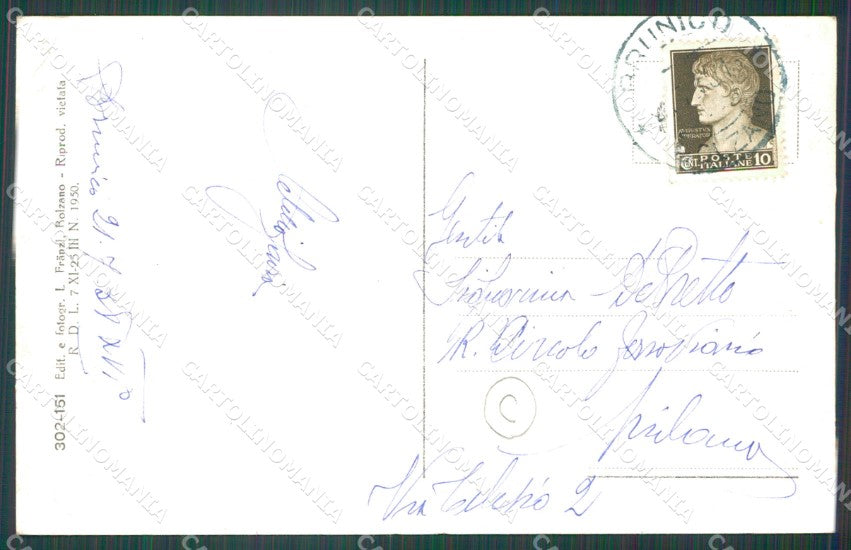 302-151 Edit. e fotogr. L. Fränzl, Bolzano - Riprod. vietata
R. D. L. 7 XI-25 III N. 1950.
Brunico 21. 7 38 XVI°
BRUNICO
AUGUSTVS
IMPERATOR
CENT. POSTE ITALIANE 10
Gentil
Signorina De Pretto
R. Circolo Ferroviario
Milano
Via
2
C
CARTOLINOMANIA